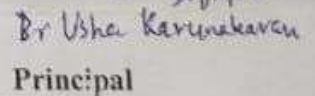 Dr Usha Karunakaran
Principal